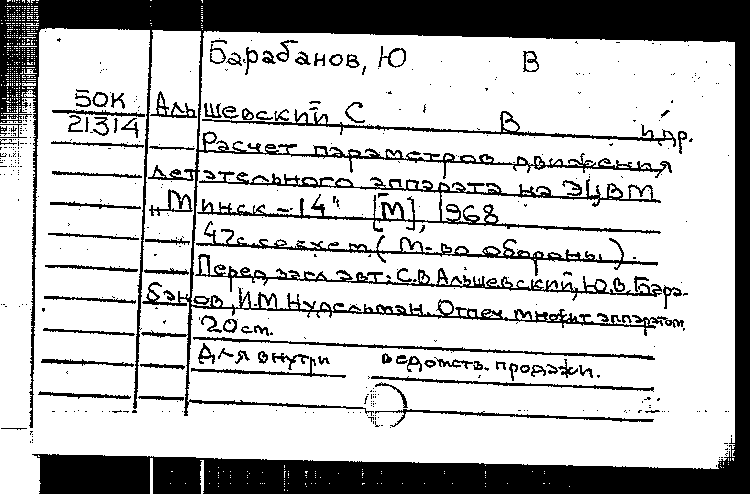 Барабанов, Ю В
50К
21314
Альшевский, С В и др.
Расчет параметров движения
летательного аппарата на ЭЦВМ
„Минск-14" [М], 1968.
47с. со схем. (М-во обороны).
Перед загл авт: С.В.Альшевский, Ю.В.Бара-
банов, И.М.Нудельман. Отпеч. множит аппаратом.
20см.
Для внутри ведомств. продажи.